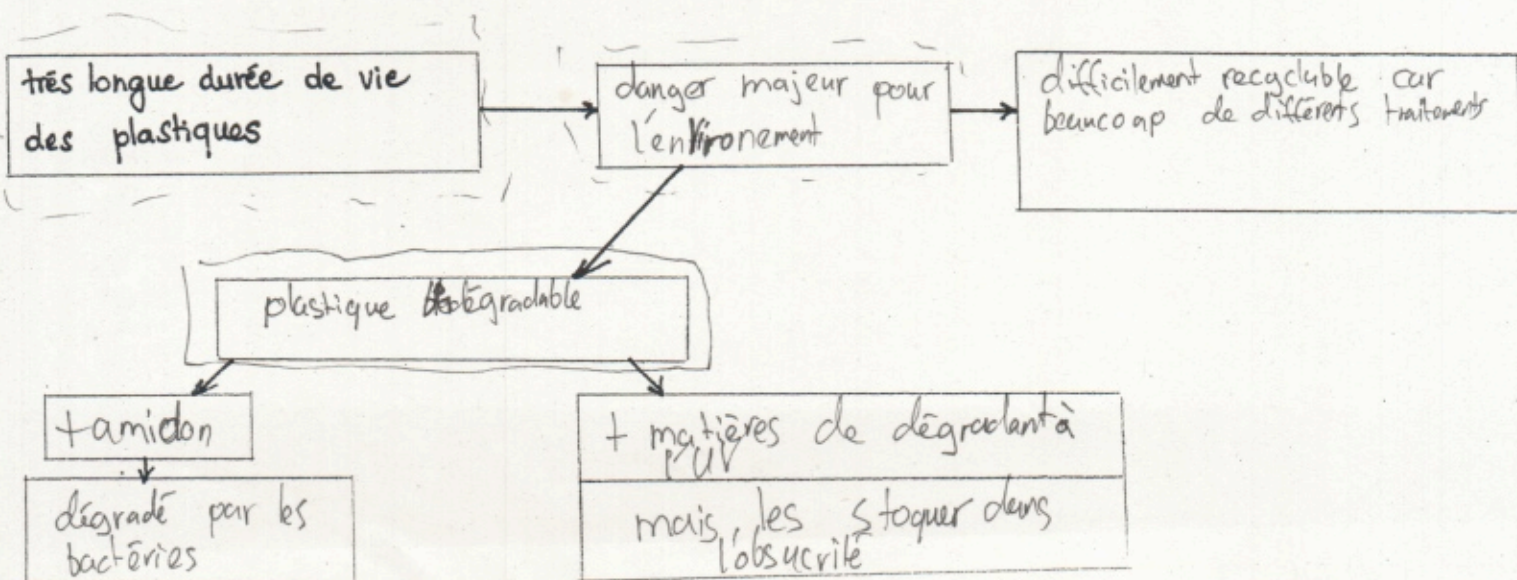 trés longue durée de vie
des plastiques
danger majeur pour
l'environement
difficilement recyclable car
beaucoup de différents traitements
plastique dégradable
+ amidon
+ matières de dégradant à
l'UV
dégradé par les
bactéries
mais, les stoquer dans
l'obsucrité